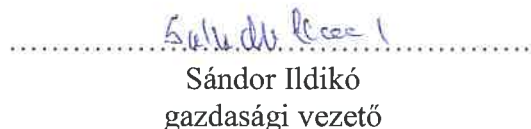 Sándor Ildikó
gazdasági vezető